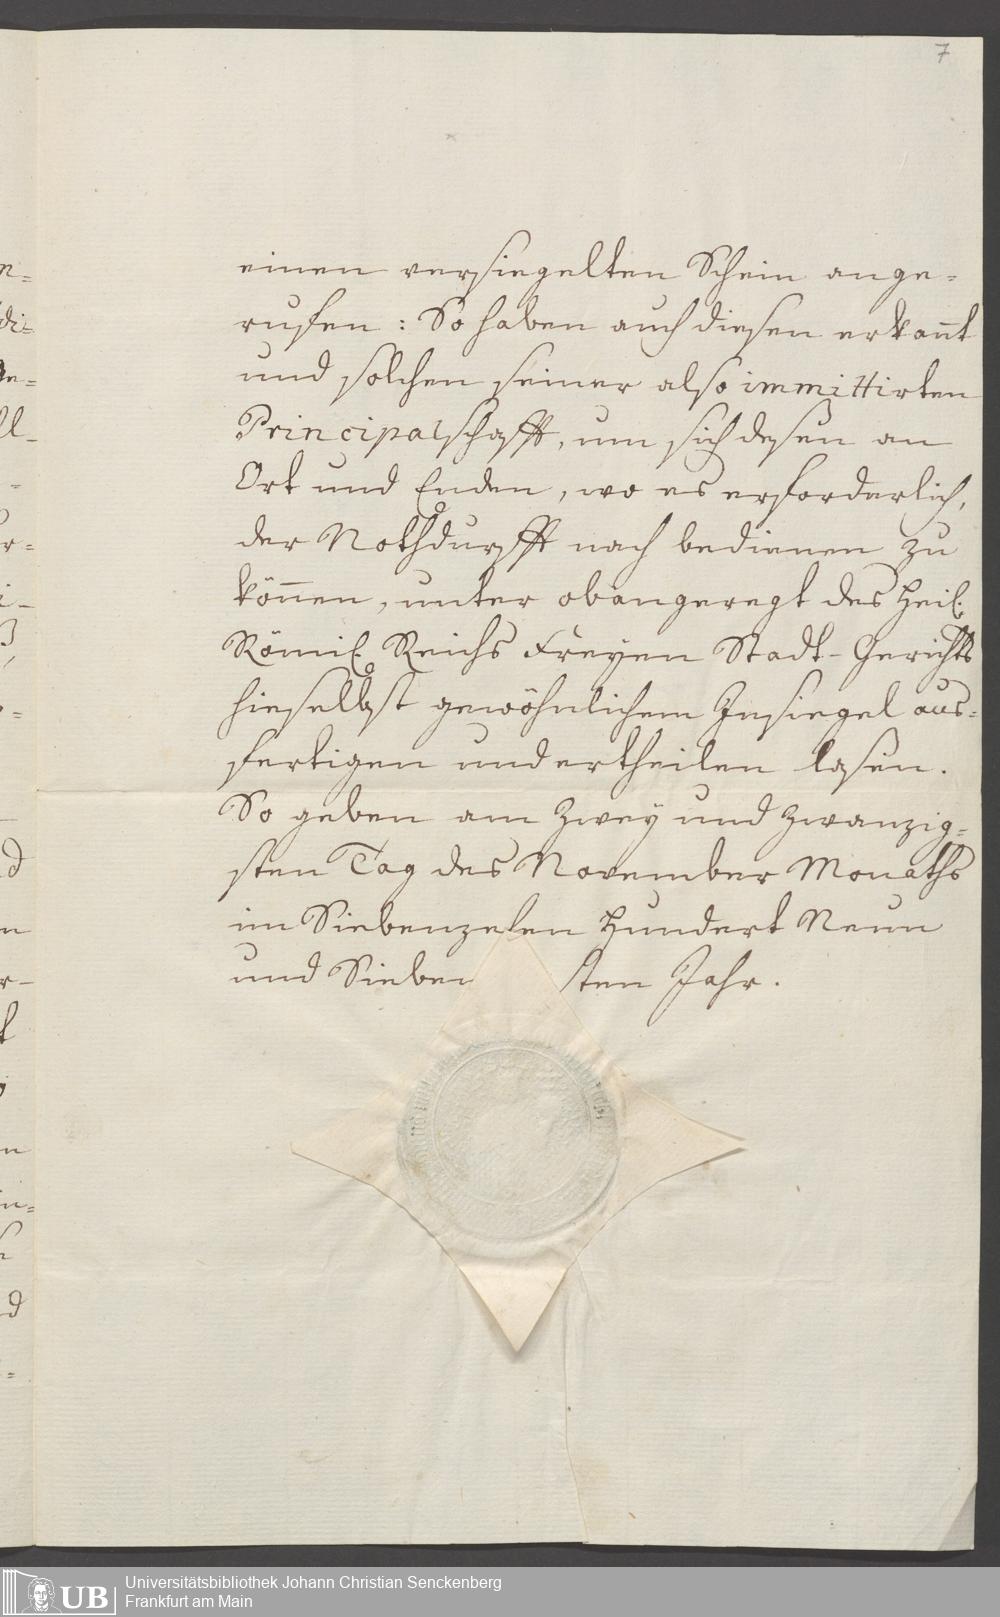 7
einen versiegelten Schein ange=
rufen: So haben auch diesen erkan̄t
und solchen seiner also immittirten
Principalschafft, um sich deßen an
Ort und Enden, wo es erforderlich,
der Nothdurfft nach bedienen zu
kön̄en, unter obangeregt des Heil.
Römis. Reichs Freyen Stadt-Gerichts
hieselbst gewöhnlichem Insiegel aus=
fertigen und ertheilen laßen.
So geben am Zwey und Zwanzig=
sten Tag des November Monaths
im Siebenzehen Hundert Neun
und Sieben sten Jahr.
UB
Universitätsbibliothek Johann Christian Senckenberg
Frankfurt am Main